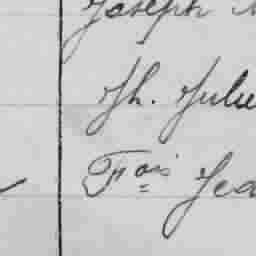 Joseph
Jh. Julie
Fois Jea